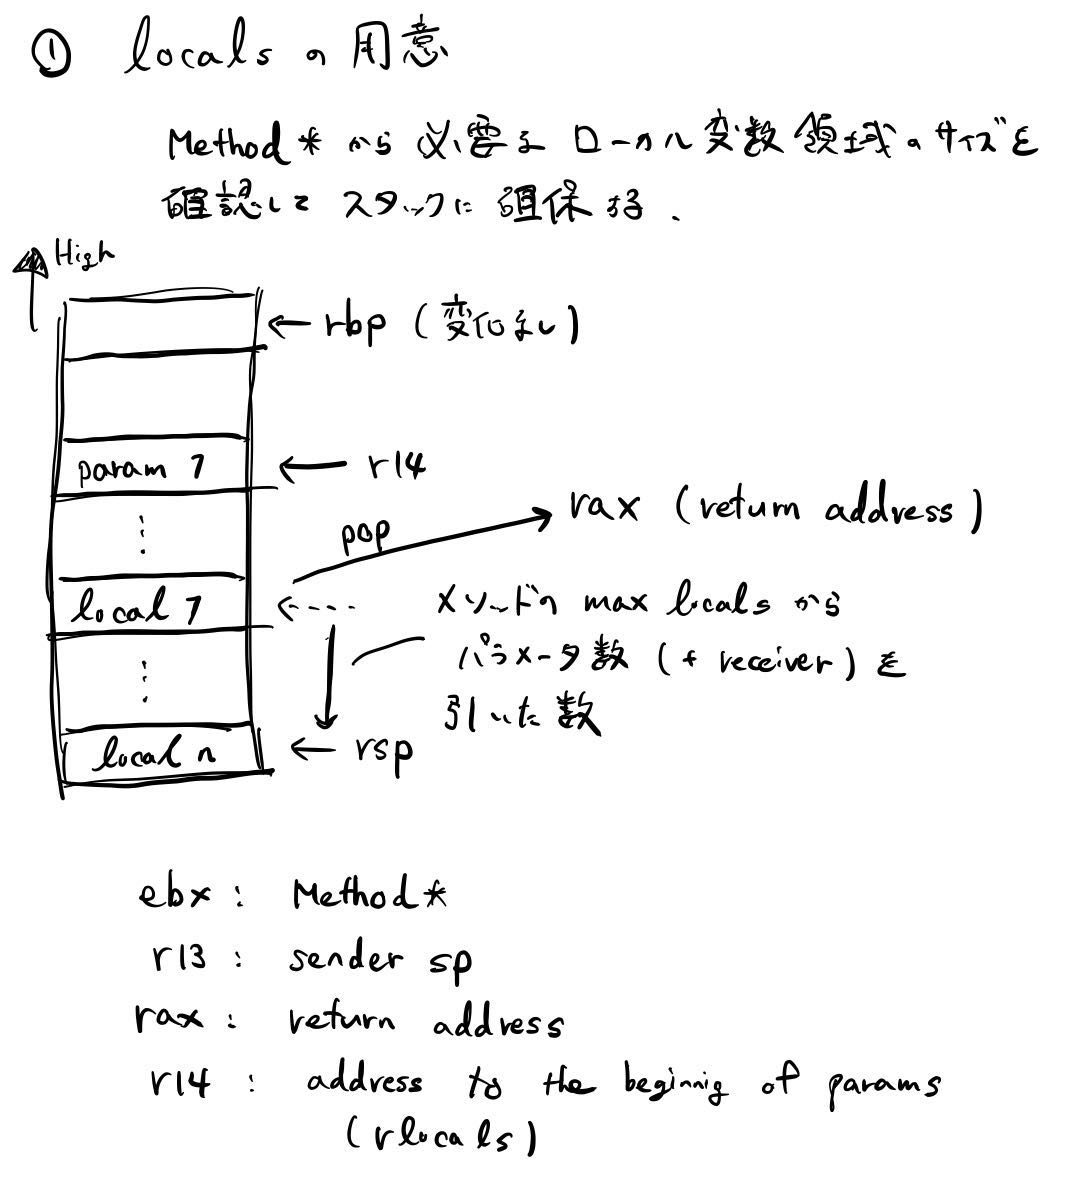 ① localsの用意
Method* から必要な ローカル変数領域のサイズを
確認して スタックに確保する.
High
rbp (変化なし)
param 1
r14
rax (return address)
pop
local 1
メソッドの max locals から
パラメータ数 (+ receiver) を
引いた数
rsp
local n
ebx : Method*
r13 : sender sp
rax : return address
r14 : address to the beginnig of params
(rlocals)